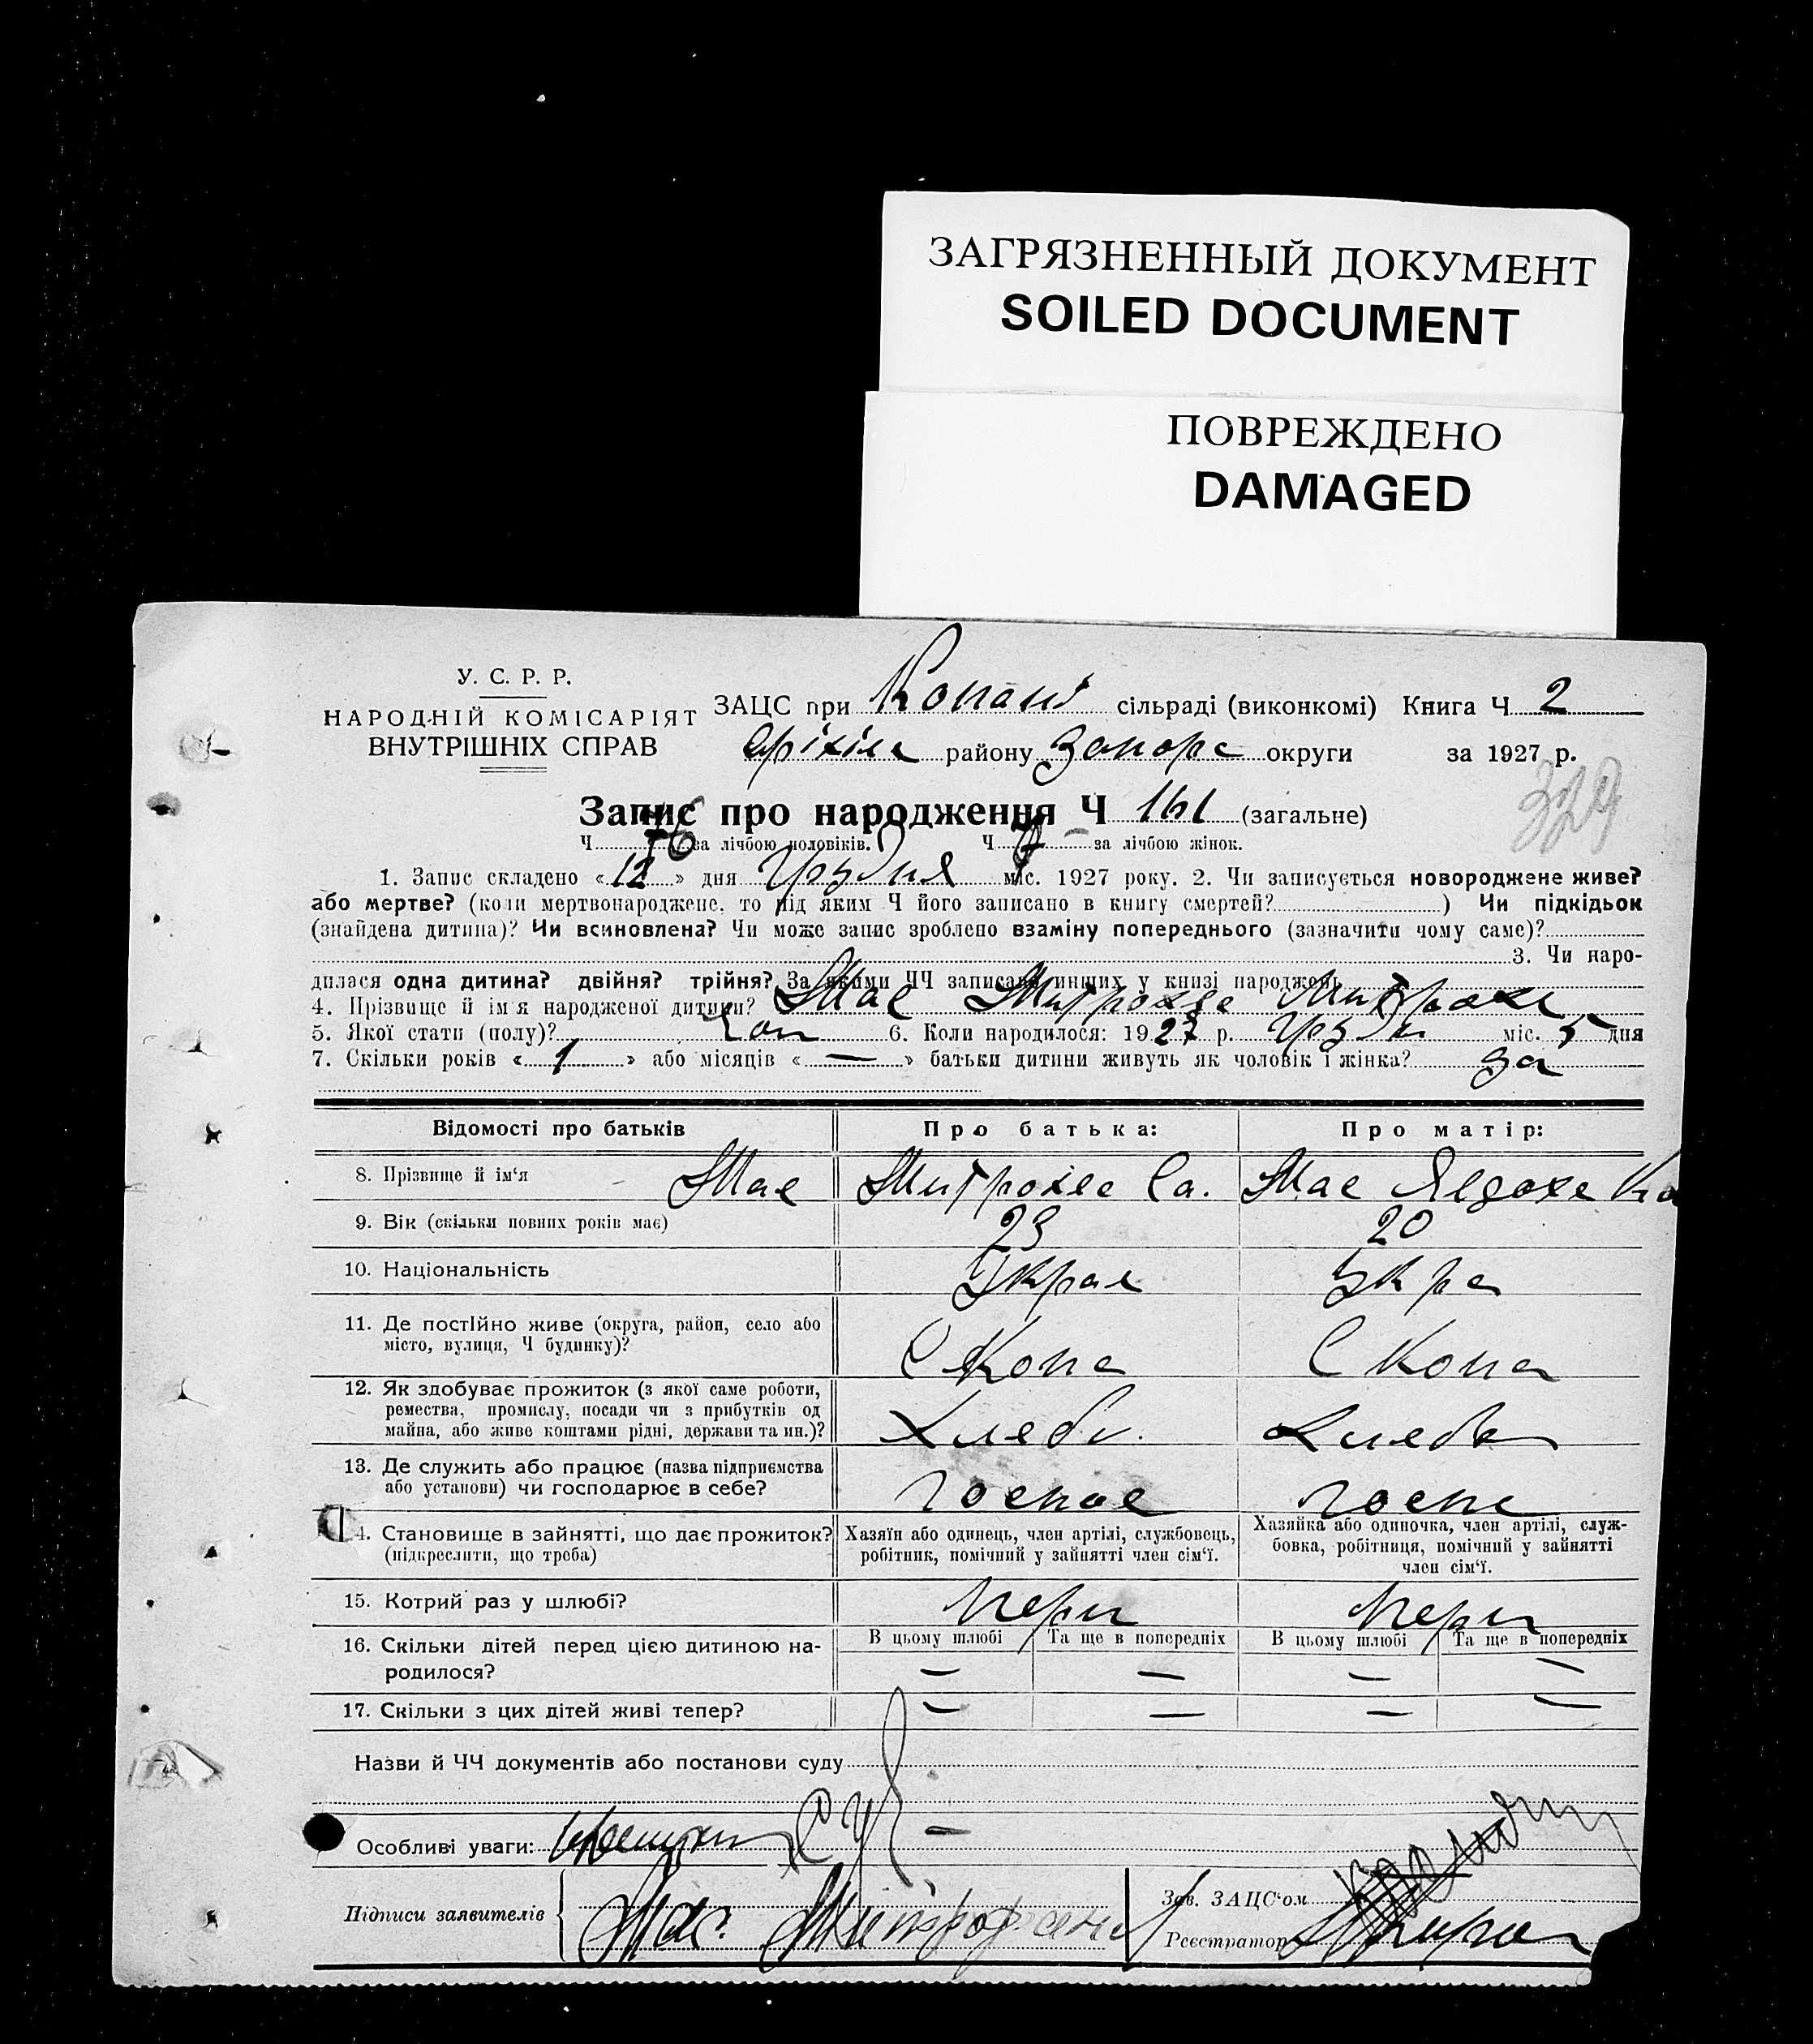 ЗАГРЯЗНЕННЫЙ ДОКУМЕНТ
SOILED DOCUMENT
ПОВРЕЖДЕНО
DAMAGED
У. С. Р. Р.
НАРОДНІЙ КОМІСАРІЯТ
ВНУТРІШНІХ СПРАВ
ЗАЦС при Копані сільраді (виконкомі) Книга Ч 2
Оріхів району Запорс округи за 1927 р.
329
Запис про народження Ч 161 (загальне)
Ч 76 за лічбою чоловіків. Ч за лічбою жінок.
1. Запис складено «12» дня Грудня міс. 1927 року. 2. Чи записується новороджене живе?
або мертве? (коли мертвонароджене, то під яким Ч його записано в книгу смертей? ) Чи підкідьок
(знайдена дитина)? Чи всиновлена? Чи може запис зроблено взаміну попереднього (зазначити чому саме)?
3. Чи наро-
дилася одна дитина? двійня? трійня? За якими ЧЧ записано инших у книзі народжень
4. Прізвище й ім'я народженої дитини? Мас Митрохве Митрохе
5. Якої стати (полу)? 6. Коли народилося: 1927 р. Грудн міс. 5 дня
7. Скільки років «1» або місяців «—» батьки дитини живуть як чоловік і жінка?
Відомості про батьків Про батька: Про матір:
8. Прізвище й ім'я Мас Митрохве Са. Мас Явдохе
9. Вік (скільки повних років має) 23 20
10. Національність Украе Укра
11. Де постійно живе (округа, район, село або
місто, вулиця, Ч будинку)? С Копа С Копа
12. Як здобуває прожиток (з якої саме роботи,
ремества, промислу, посади чи з прибутків од
майна, або живе коштами рідні, держави та ин.)? Хлебо Хлебо
13. Де служить або працює (назва підприємства
або установи) чи господарює в себе? Госпо Госпо
14. Становище в зайнятті, що дає прожиток?
(підкреслити, що треба)
Хазяїн або одинець, член артілі, службовець,
робітник, помічний у зайнятті член сім'ї.
Хазяйка або одиночка, член артілі, служ-
бовка, робітниця, помічний у зайнятті
член сім'ї.
15. Котрий раз у шлюбі? Перш Перш
В цьому шлюбі Та ще в попередніх В цьому шлюбі Та ще в попередніх
16. Скільки дітей перед цією дитиною на-
родилося? — — — —
17. Скільки з цих дітей живі тепер? — — — —
Назви й ЧЧ документів або постанови суду
Особливі уваги: —
Підписи заявителів Мас Митрофан
Зав. ЗАЦС'ом
Реєстратор